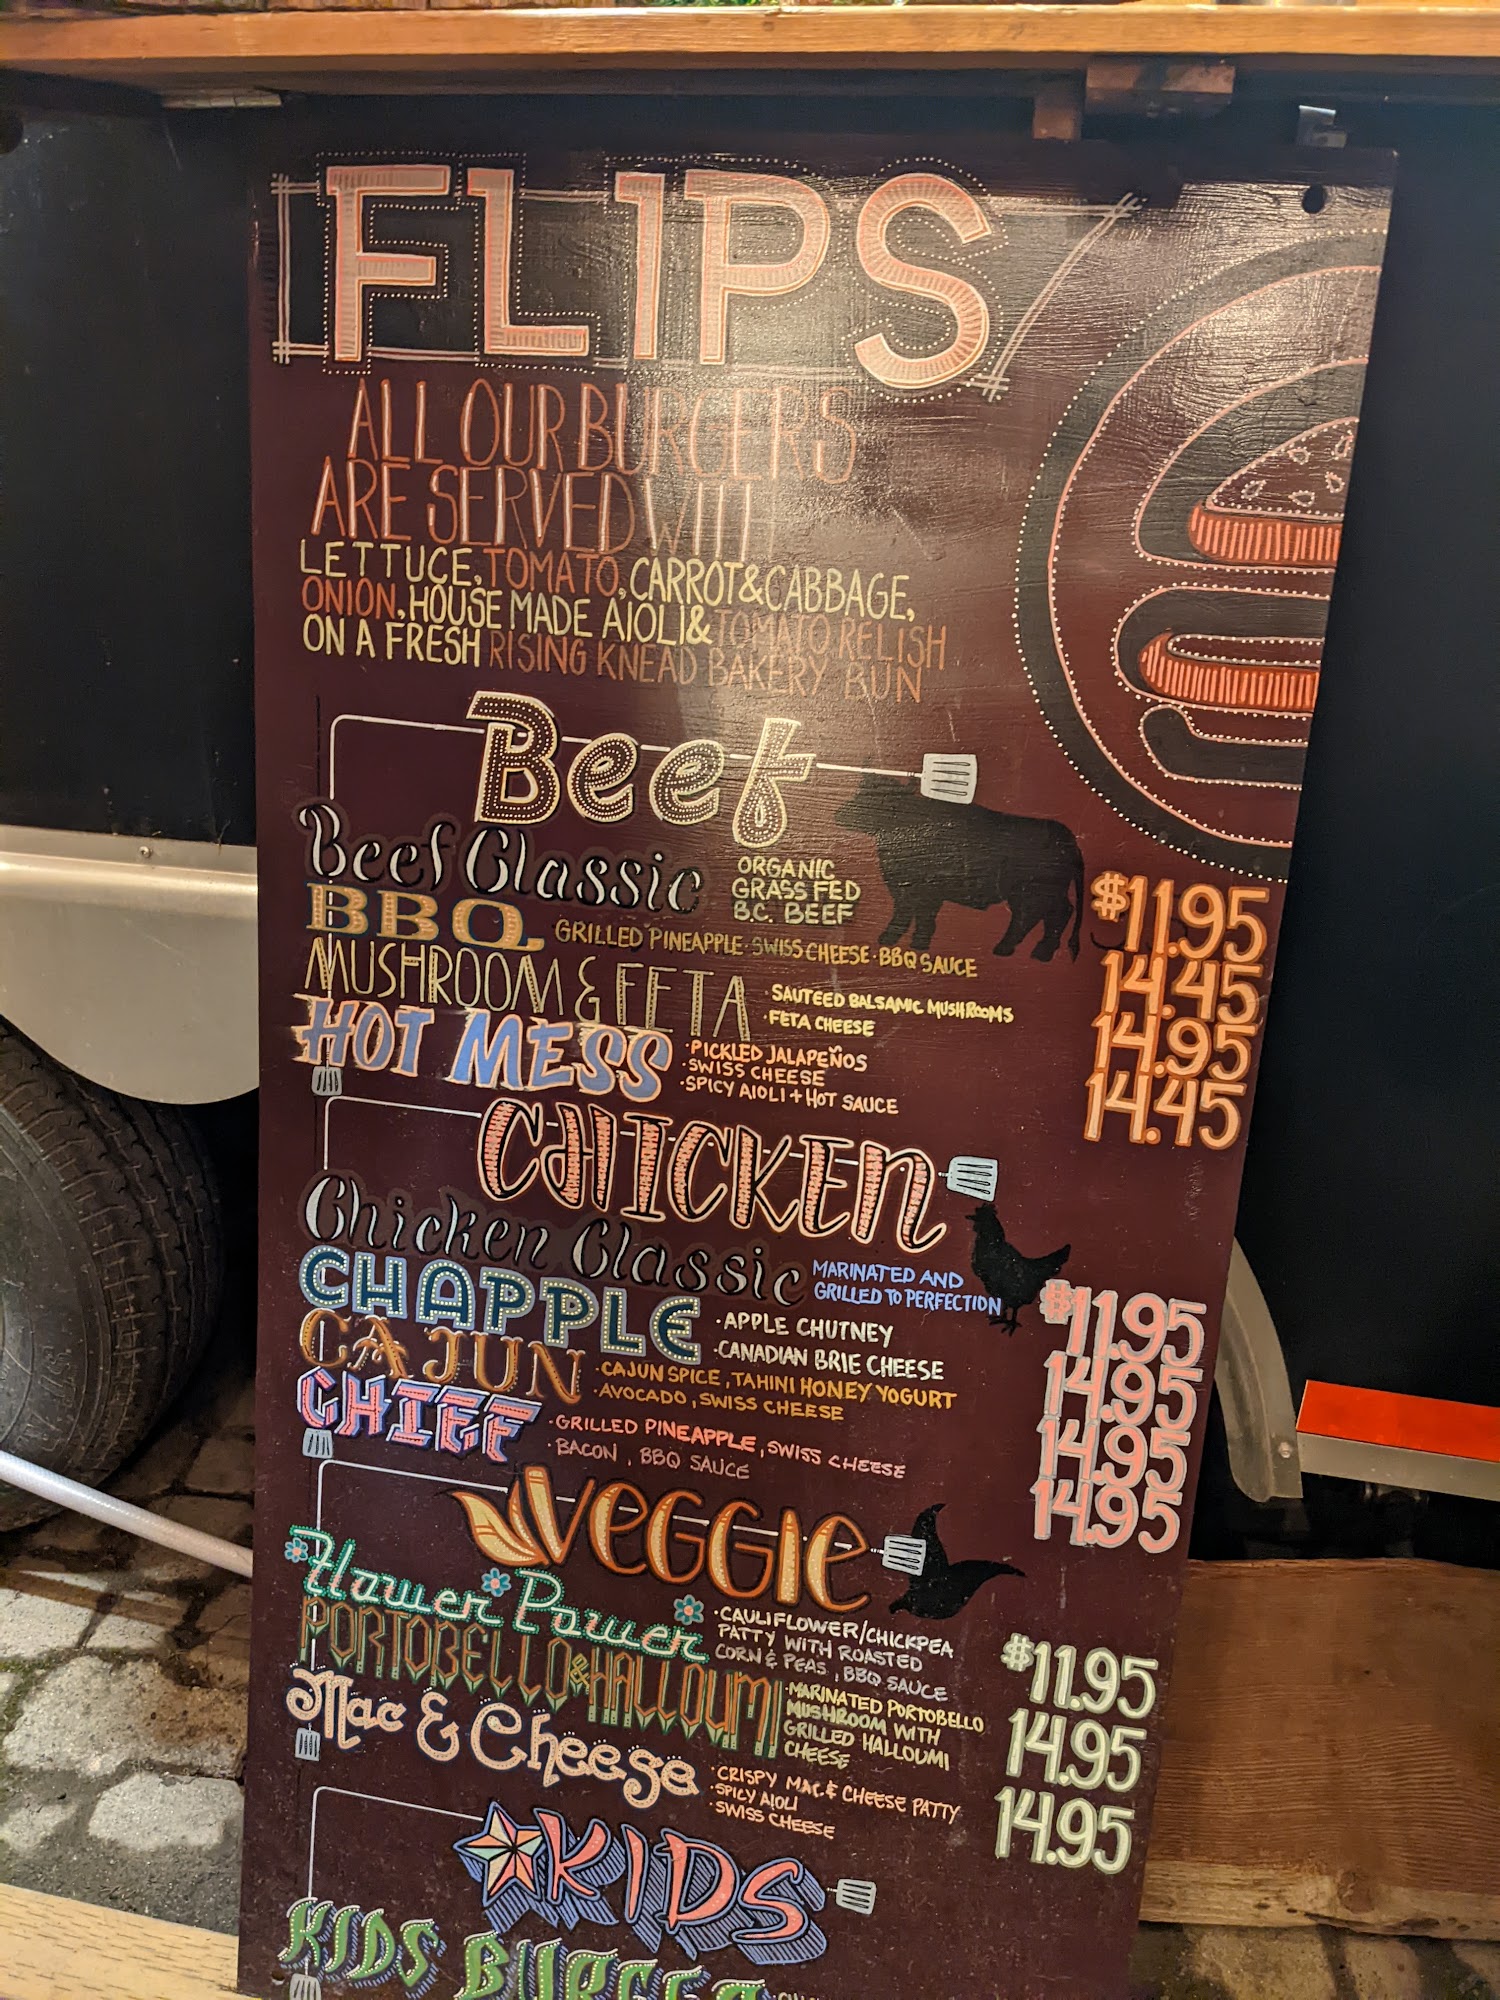 FLIPS
ALL OUR BURGERS
ARE SERVED WITH
LETTUCE, TOMATO, CARROT & CABBAGE,
ONION, HOUSE MADE AIOLI & TOMATO RELISH
ON A FRESH RISING KNEAD BAKERY BUN
Beef
Beef Classic ORGANIC GRASS FED B.C. BEEF $11.95
BBQ GRILLED PINEAPPLE · SWISS CHEESE · BBQ SAUCE 14.45
MUSHROOM & FETA · SAUTEED BALSAMIC MUSHROOMS · FETA CHEESE 14.95
HOT MESS · PICKLED JALAPEÑOS · SWISS CHEESE · SPICY AIOLI + HOT SAUCE 14.45
CHICKEN
Chicken Classic MARINATED AND GRILLED TO PERFECTION $11.95
CHAPPLE · APPLE CHUTNEY · CANADIAN BRIE CHEESE 14.95
CAJUN · CAJUN SPICE, TAHINI HONEY YOGURT · AVOCADO, SWISS CHEESE 14.95
CHIEF · GRILLED PINEAPPLE, SWISS CHEESE · BACON, BBQ SAUCE 14.95
VEGGIE
Flower Power · CAULIFLOWER/CHICKPEA PATTY WITH ROASTED CORN & PEAS, BBQ SAUCE $11.95
PORTOBELLO & HALLOUMI · MARINATED PORTOBELLO MUSHROOM WITH GRILLED HALLOUMI CHEESE 14.95
Mac & Cheese · CRISPY MAC & CHEESE PATTY · SPICY AIOLI · SWISS CHEESE 14.95
KIDS
KIDS BURGER